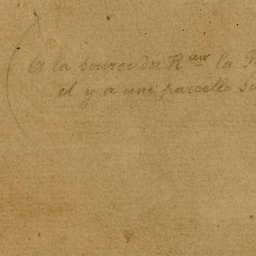 A la source du R^eau la
il y a une parcelle